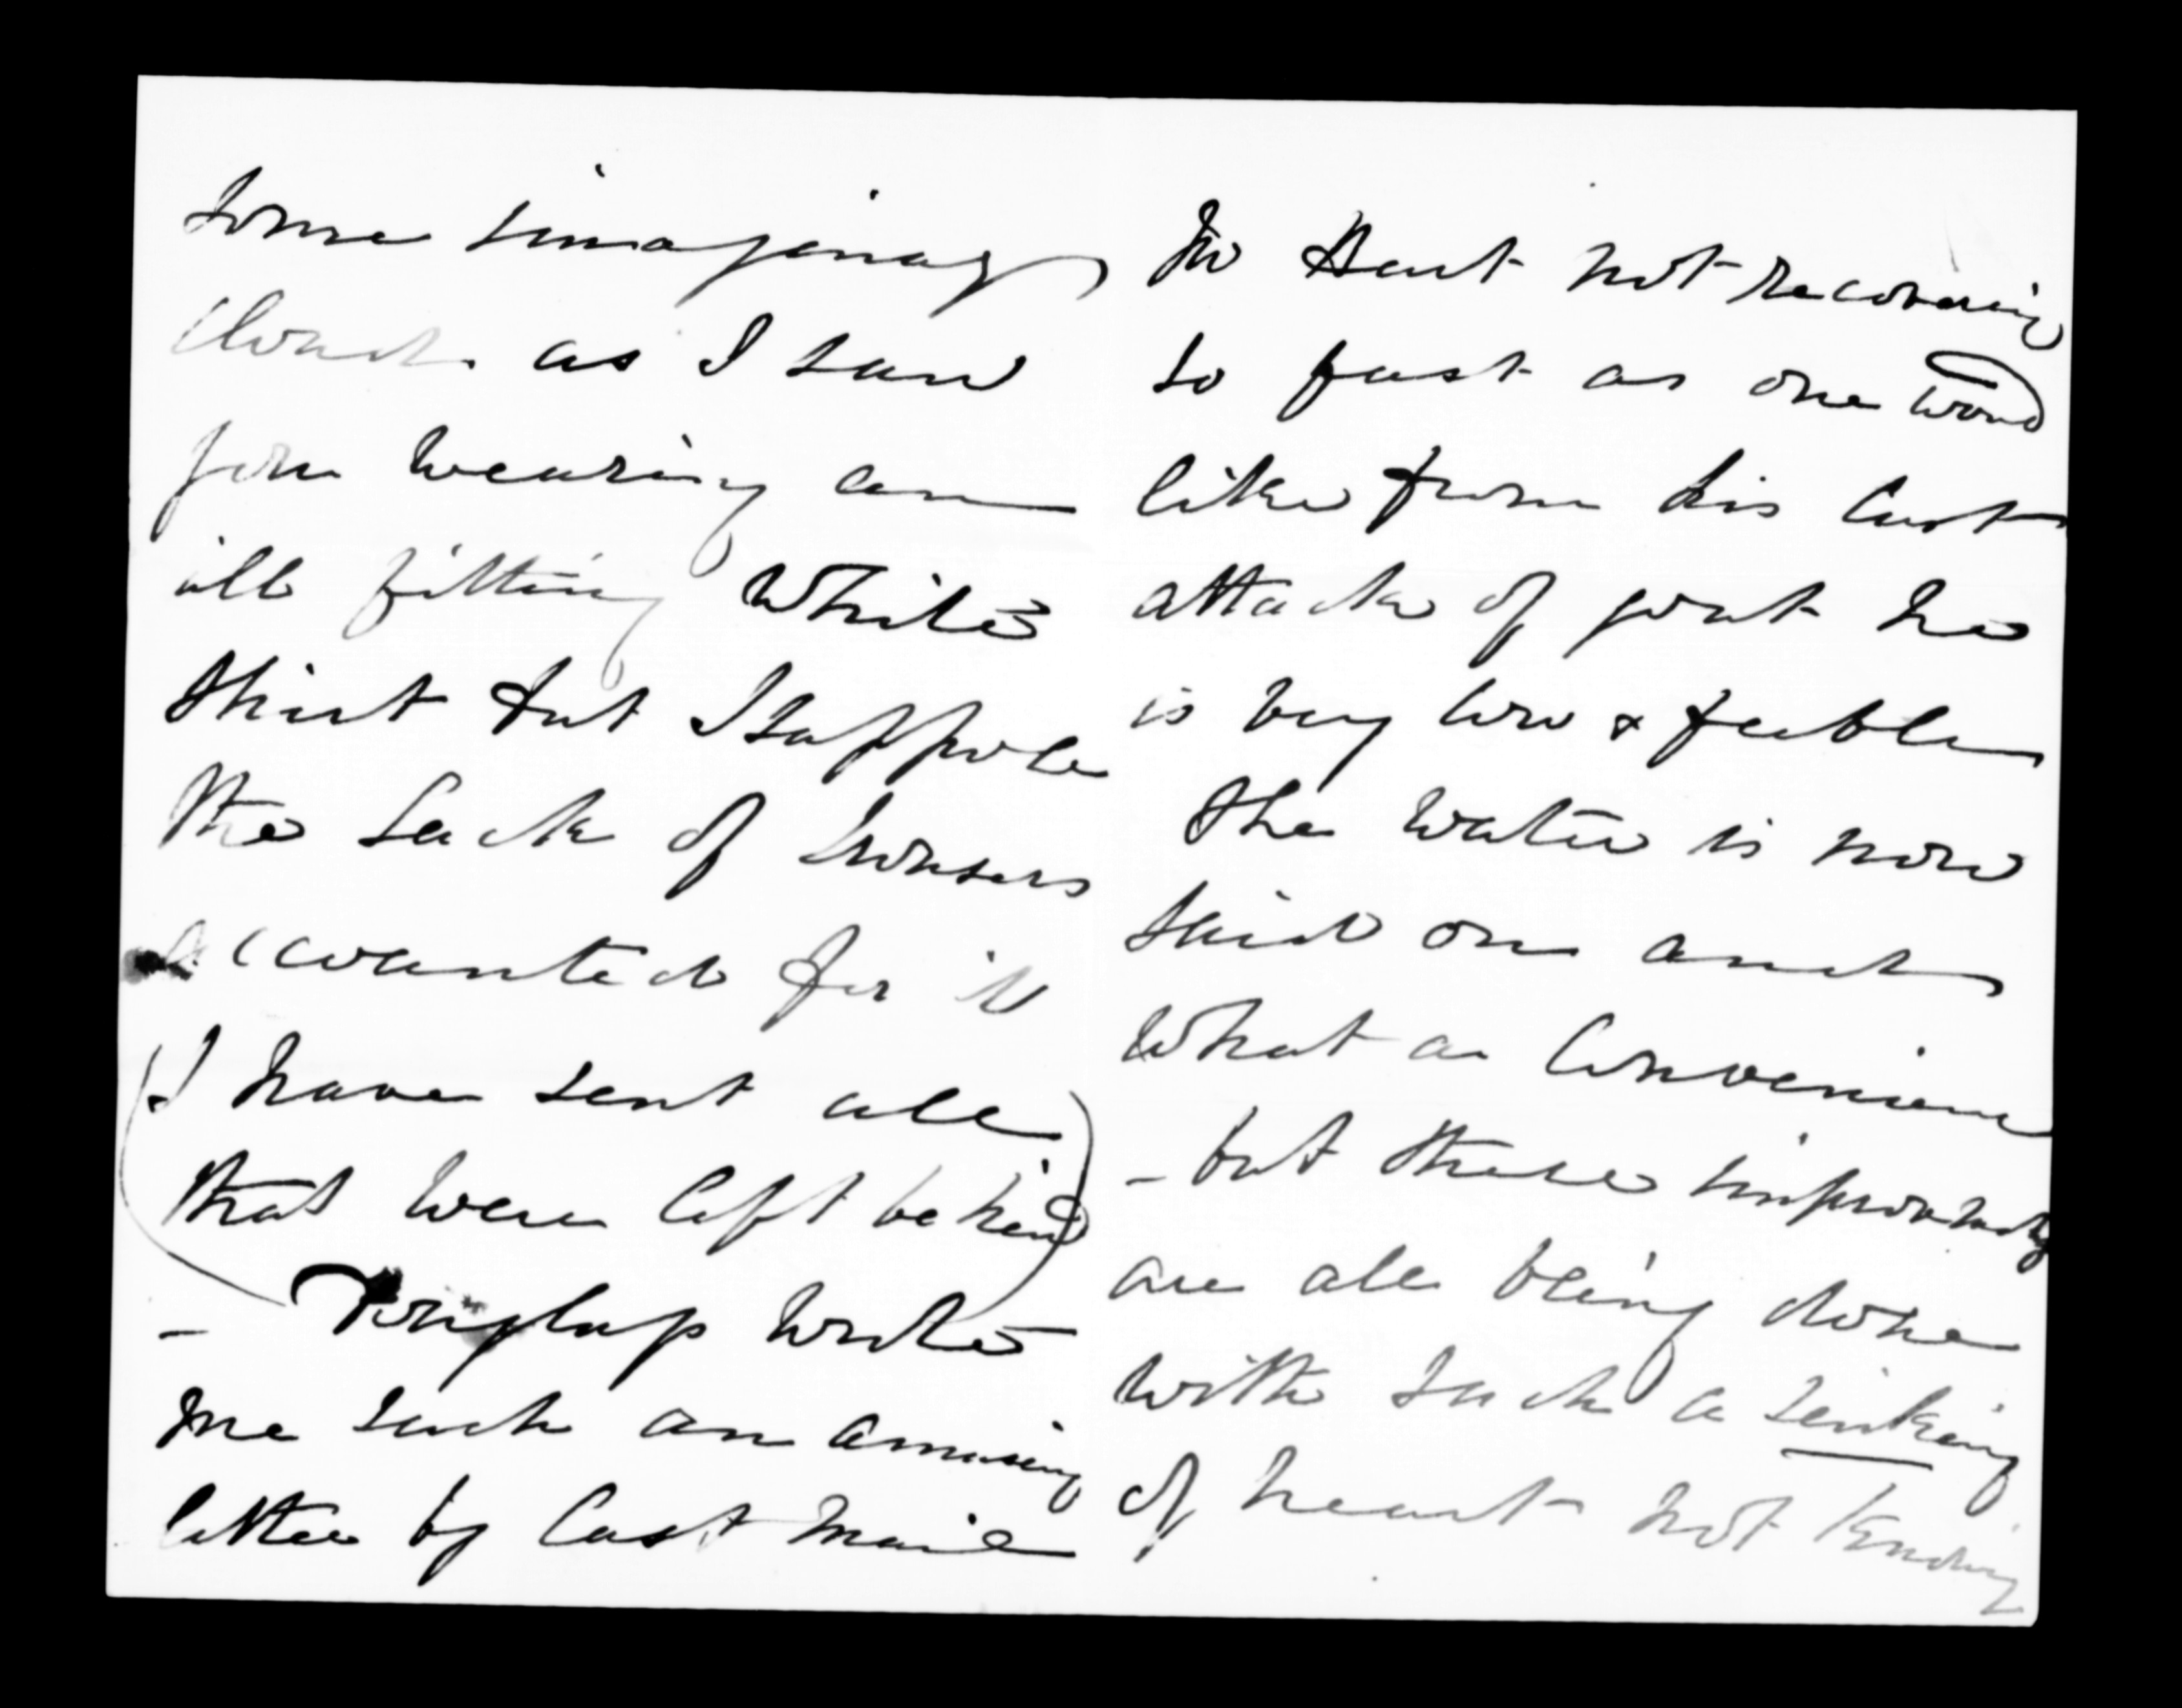 some imaginary
cloud as I saw
you wearing an
ill fitting white
shirt but I suppose
the lack of housers
accounted for it
(I have sent all
that were left behind)
- wrote
me such an amusing
letter by last mail
Sir not recovering
so fast as one would
like from his last
attack of gout he
is very low & feeble
The water is now
laid on and
what a convenience
- but these improvements
are all being done
with such a sinking
of heart not knowing